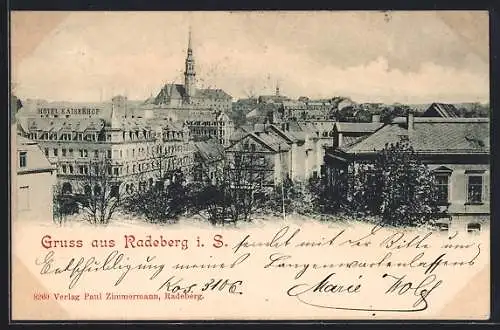 HOTEL KAISERHOF
Gruss aus Radeberg i. S. sendet mit der Bitte um
Entschuldigung meines Langenwartenlassens
Kos. 3106 Marie Wolf
8260 Verlag Paul Zimmermann, Radeberg.